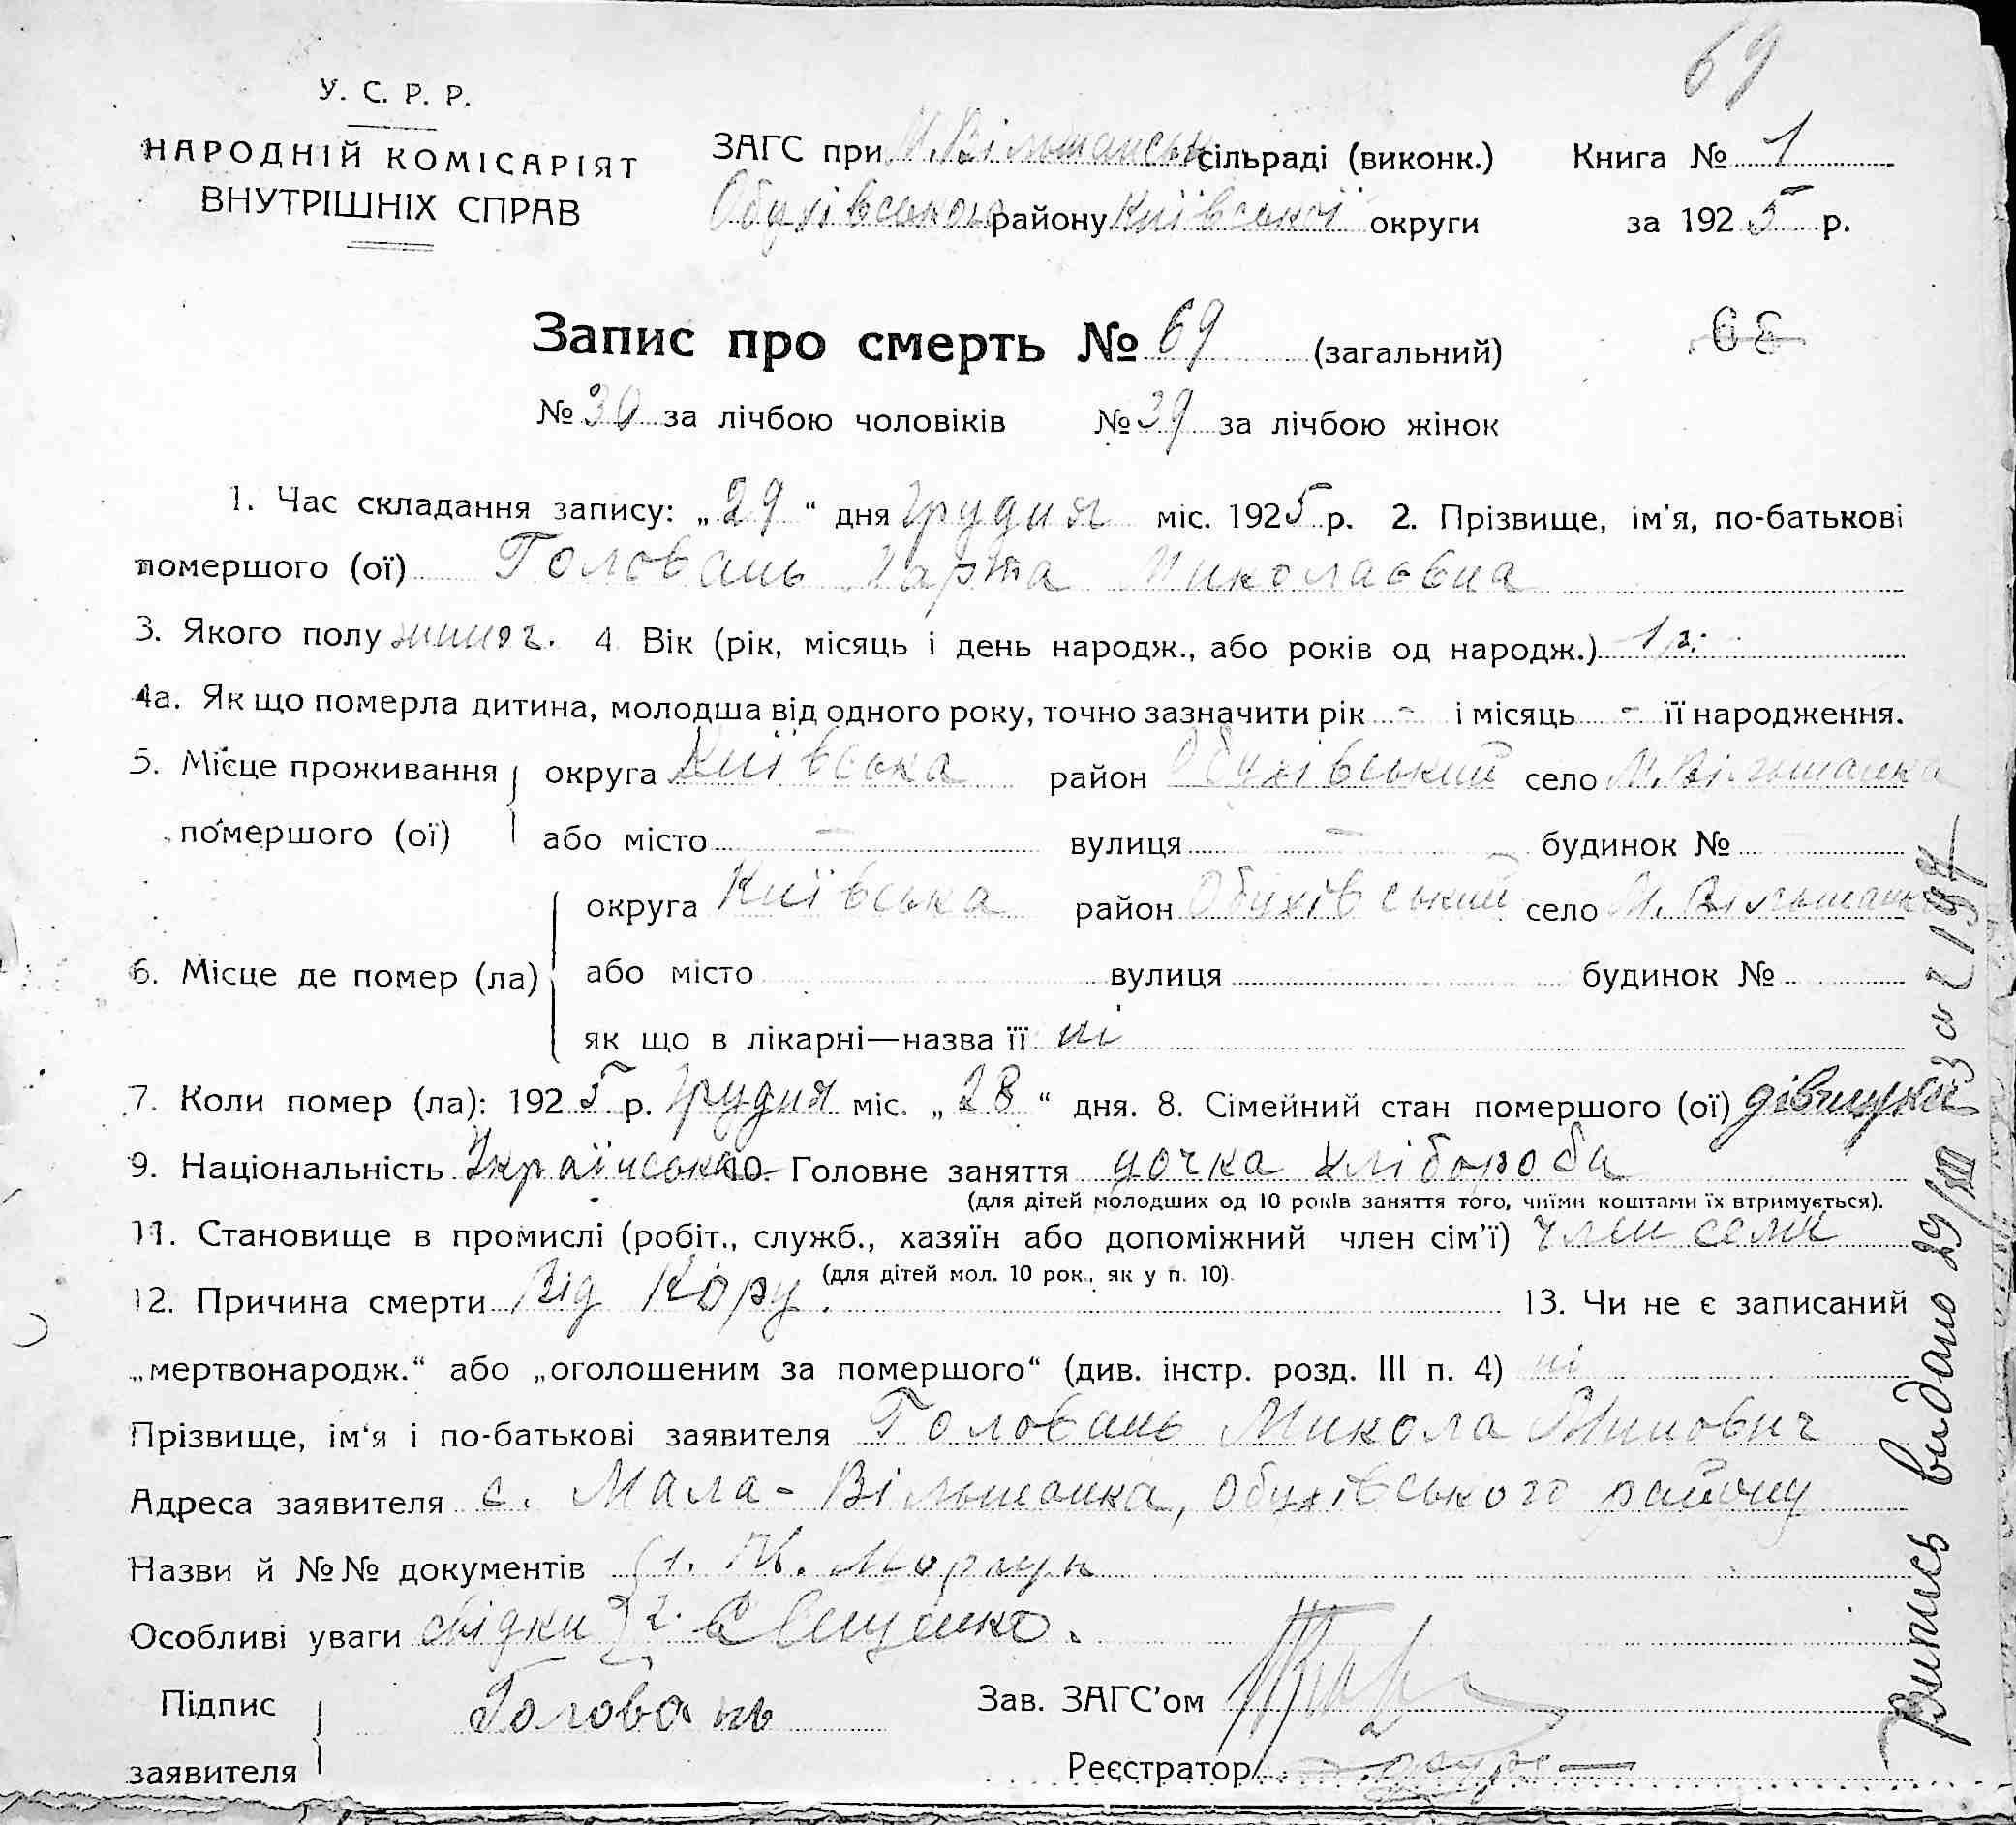 69
У. С. Р. Р.
НАРОДНІЙ КОМІСАРІЯТ
ВНУТРІШНІХ СПРАВ
ЗАГС при М. Вільшанськ сільраді (виконк.)
Обухівського району Київської округи
Книга № 1
за 1925 р.
Запис про смерть № 69 (загальний)
68
№ 30 за лічбою чоловіків № 39 за лічбою жінок
1. Час складання запису: „29“ дня Грудня міс. 1925 р. 2. Прізвище, ім'я, по-батькові
помершого (ої) Головань Марта Миколаєвна
3. Якого полу жиноч. 4 Вік (рік, місяць і день народж., або років од народж.) 1 р.
4а. Як що померла дитина, молодша від одного року, точно зазначити рік - і місяць - її народження.
5. Місце проживання помершого (ої) округа Київська район Обухівський село М. Вільшанка
або місто — вулиця — будинок №
6. Місце де помер (ла) округа Київська район Обухівський село М. Вільшанка
або місто вулиця будинок №
як що в лікарні—назва її ні
7. Коли помер (ла): 1925 р. Грудня міс. „28“ дня. 8. Сімейний стан помершого (ої) дівчинка
9. Національність Українська 10. Головне заняття дочка хлібороба
(для дітей молодших од 10 років заняття того, чиїми коштами їх втримується).
11. Становище в промислі (робіт., служб., хазяїн або допоміжний член сім'ї) член семи
(для дітей мол. 10 рок., як у п. 10).
12. Причина смерти Від Кору. 13. Чи не є записаний
„мертвонародж.“ або „оголошеним за помершого“ (див. інстр. розд. III п. 4) ні
Прізвище, ім'я і по-батькові заявителя Головань Микола
Адреса заявителя с. Мала-Вільшанка, Обухівського району
Назви й №№ документів 1.
Особливі уваги свідки 2.
Підпис заявителя Головань
Зав. ЗАГС'ом
Реєстратор
Випись видано 29/XII